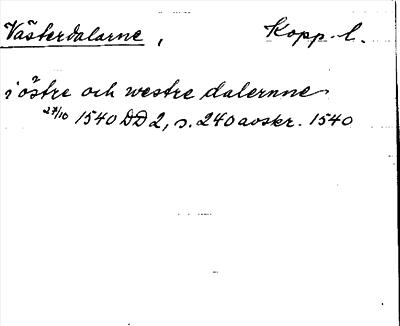 Västerdalarne, Kopp. l.
i östre och westre dalernne
27/10 1540 DD 2, s. 240 avskr. 1540